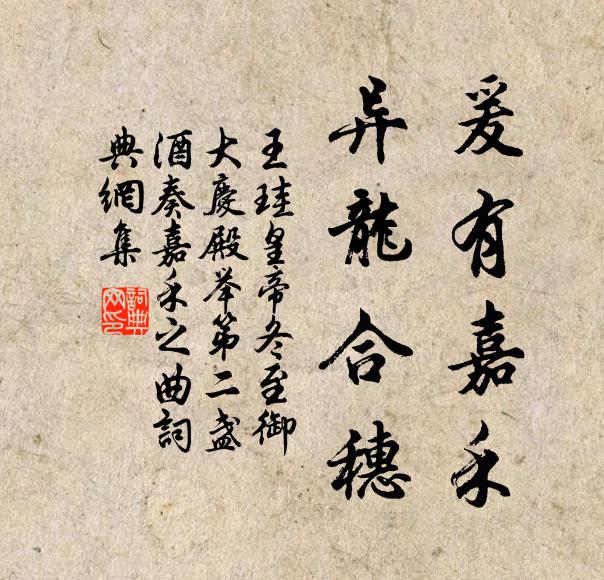 爰有嘉禾
异龍合穗
王珪皇帝冬至御
大慶殿举第二盏
酒奏嘉禾之曲詞
典網集
詞典
网印